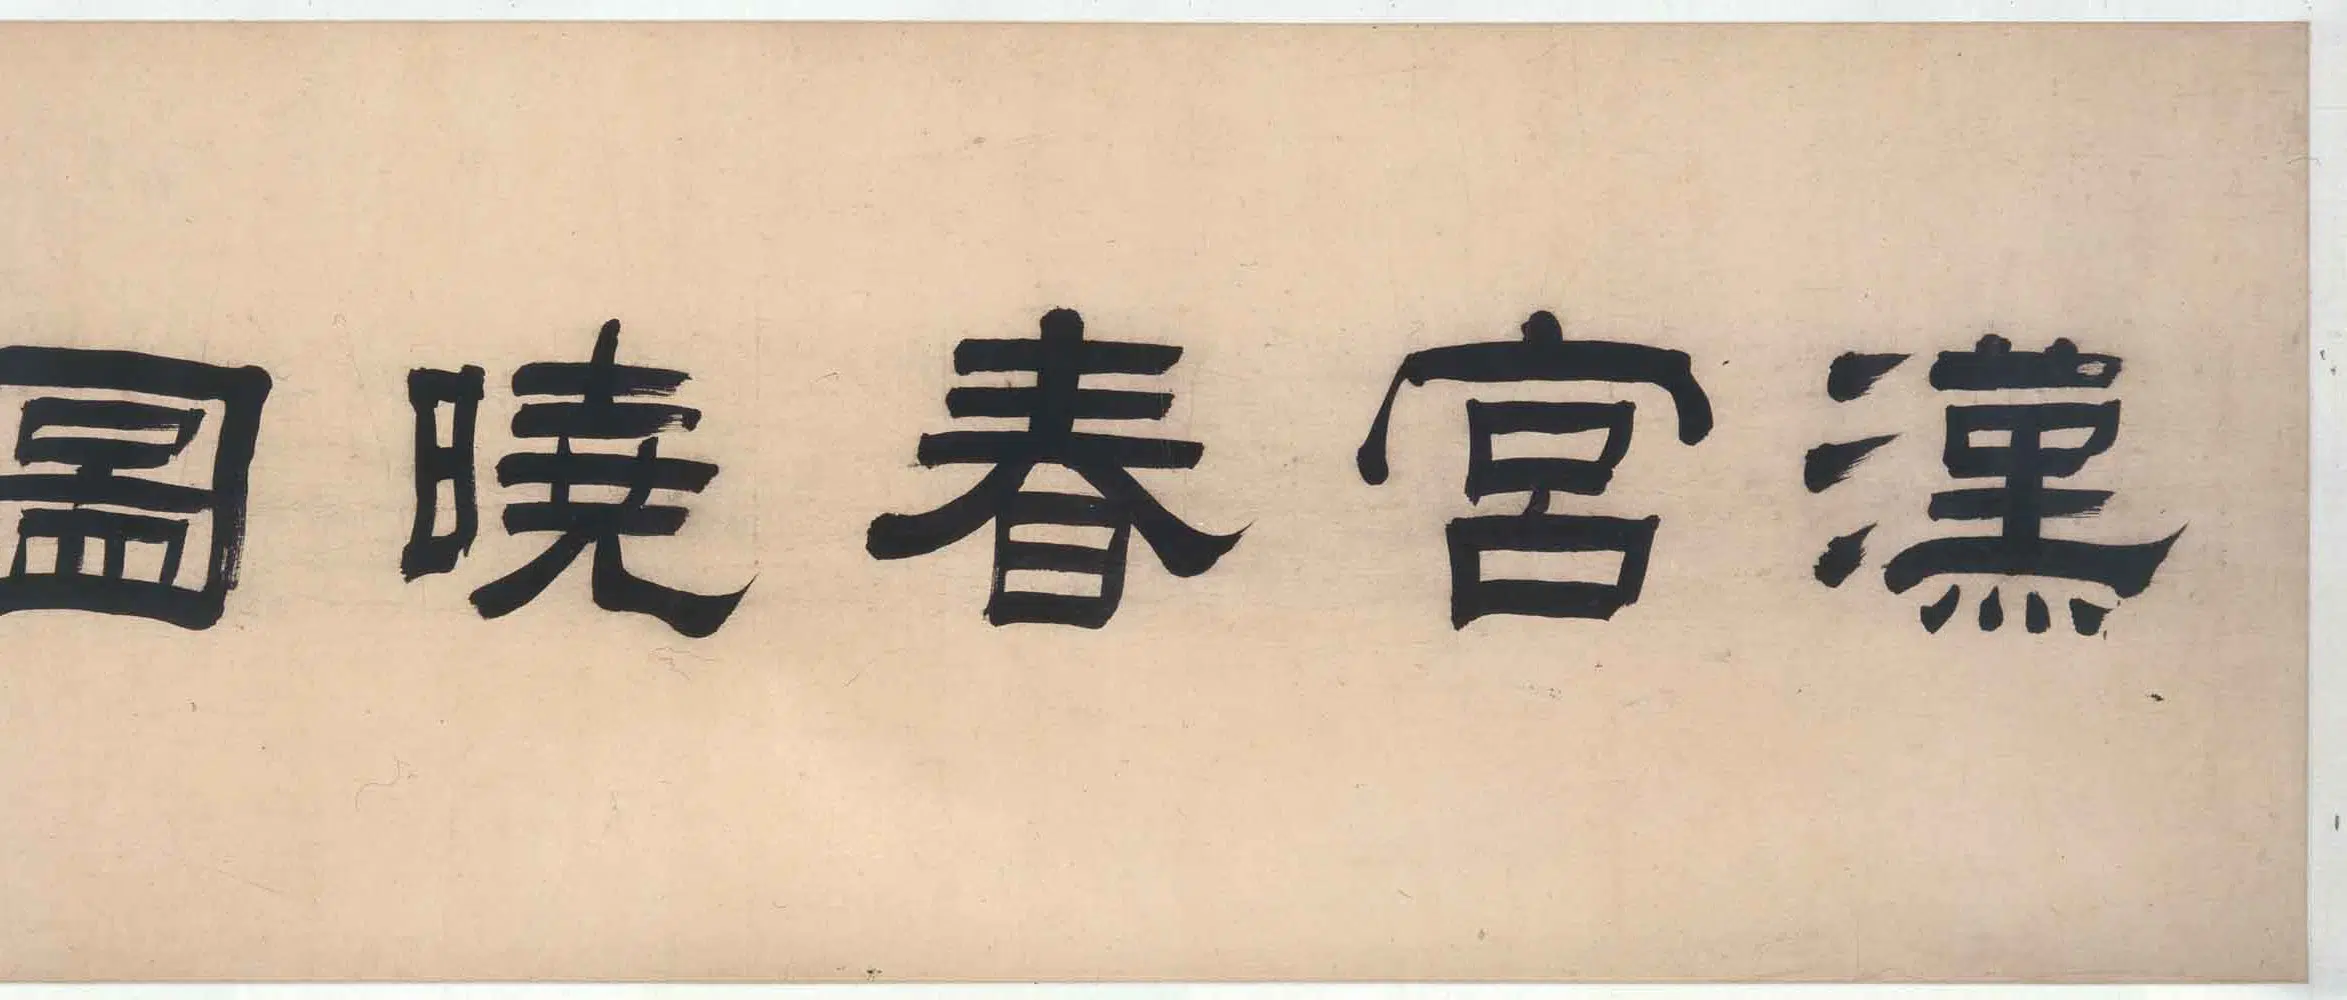 漢宮春曉圖